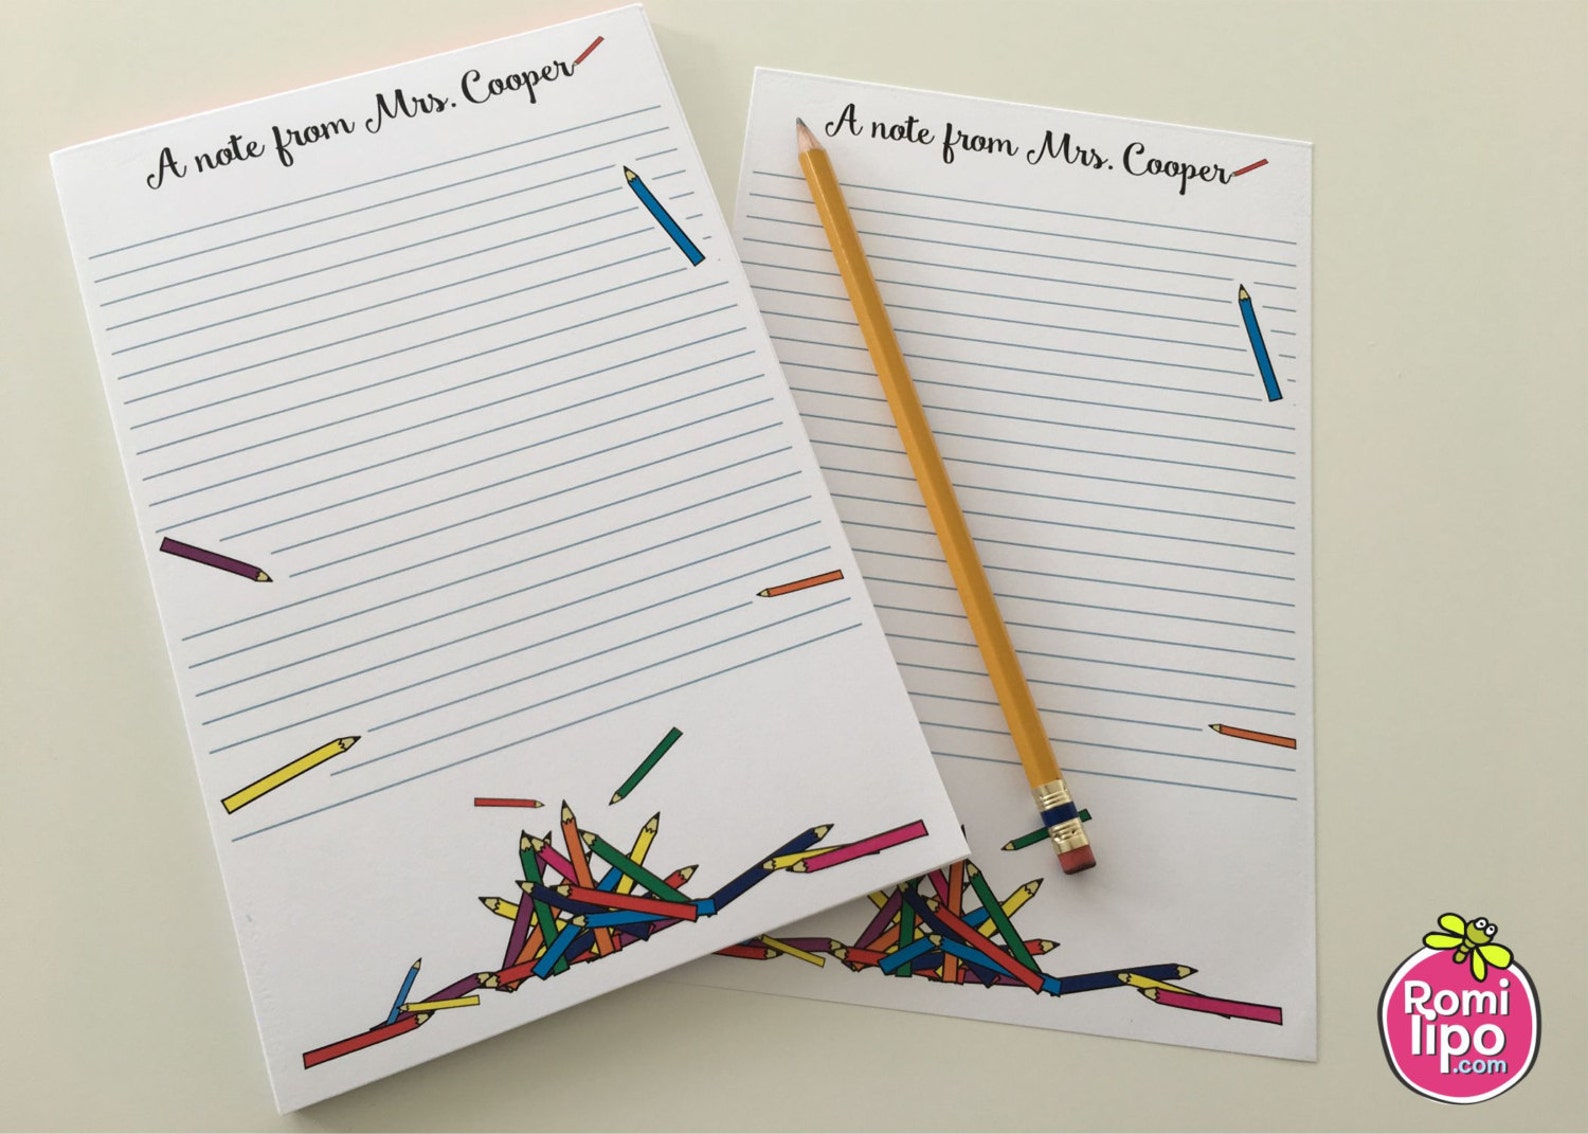 A note from Mrs. Cooper
A note from Mrs. Cooper
Romi
lipo
.com